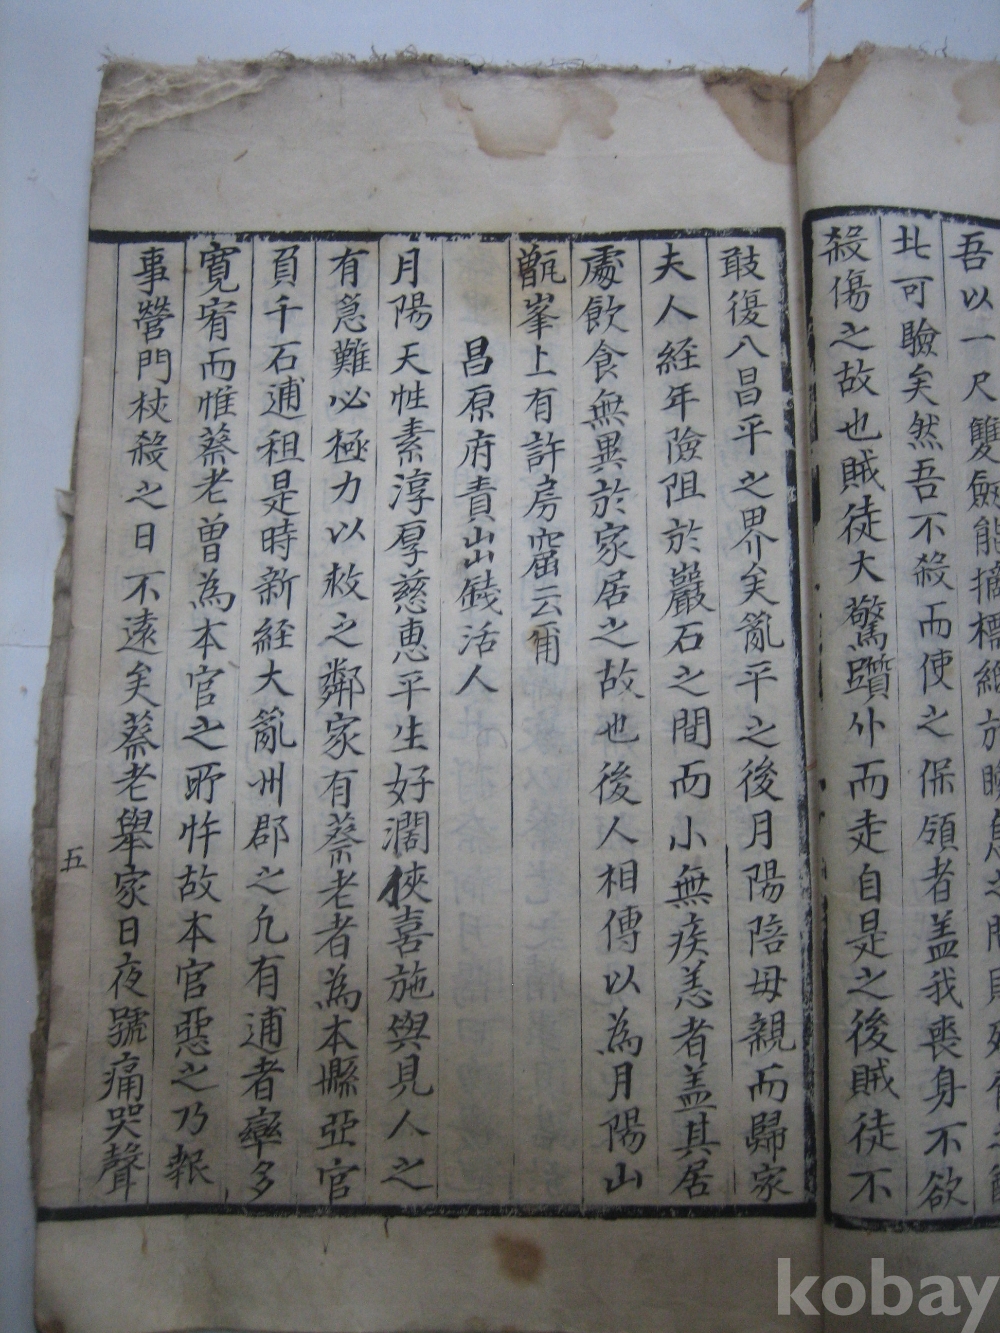 吾以一尺雙劔能摘標紙於瞻忽之間
北可驗矣然吾不殺而使之保領者盖我喪身不欲
殺傷之故也賊徒大驚躓仆而走自是之後賊徒不
敢復入昌平之界矣亂平之後月陽陪母親而歸家
夫人経年險阻於巖石之間而小無疾恙者盖其居
處飲食無異於家居之故也後人相傳以為月陽山
甑峯上有許房窟云甭
昌原府責山山餞活人
月陽天性素淳厚慈惠平生好濶俠喜施與見人之
有急難必極力以救之鄰家有蔡老者為本縣亞官
負千石逋租是時新経大亂州郡之凢有逋者率多
寛宥而惟蔡老曽為本官之所忤故本官惡之乃報
事營門杖殺之日不遠矣蔡老舉家日夜號痛哭聲
五
kobay